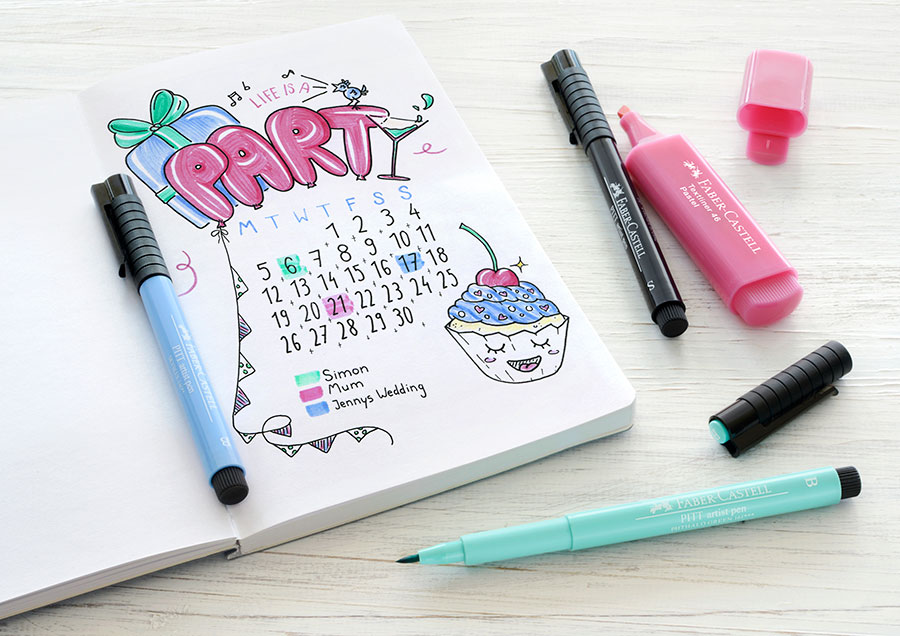 LIFE IS A
PARTY
M T W T F S S
1 2 3 4
5 6 7 8 9 10 11
12 13 14 15 16 17 18
19 20 21 22 23 24 25
26 27 28 29 30
Simon
Mum
Jennys Wedding
FABER-CASTELL
PITT artist pen
B
FABER-CASTELL
S
FABER-CASTELL
Textliner 46
Pastel
FABER-CASTELL
PITT artist pen
B